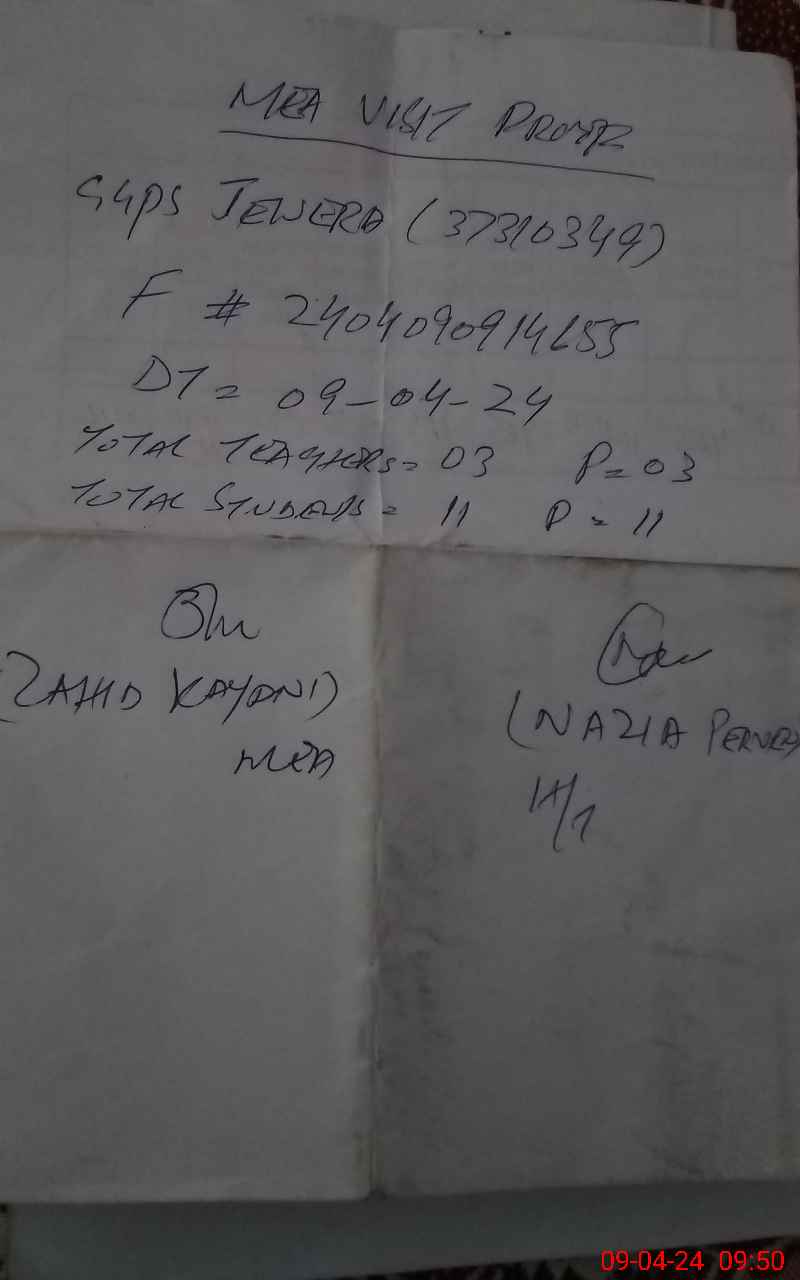 MEA VISIT PROOF
GGPS JEWERA (37310349)
F # 2404090914655
DT = 09-04-24
TOTAL TEACHERS = 03 P = 03
TOTAL STUDENTS = 11 P = 11
(ZAHID KAYANI)
MEA
(NAZIA PERVEZ)
H/T
09-04-24 09:50